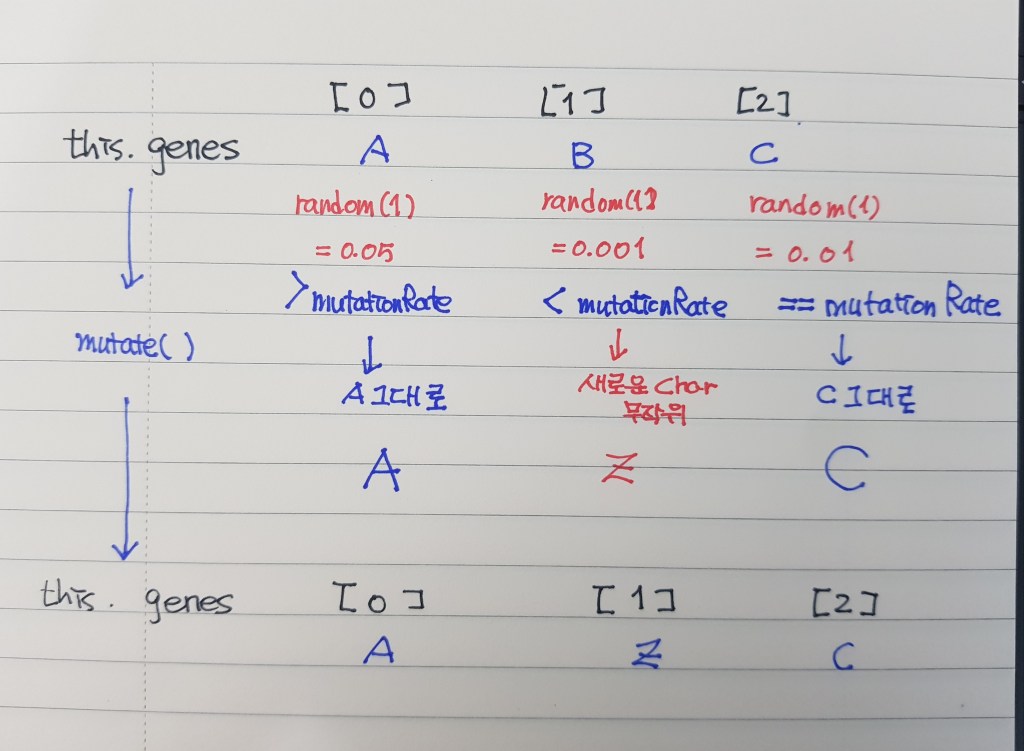 [0] [1] [2]
this. genes A B C
random(1) random(1) random(1)
= 0.05 = 0.001 = 0.01
> mutationRate < mutationRate == mutation Rate
mutate( )
A 그대로 새로운 Char C 그대로
무작위
A Z C
this. genes [0] [1] [2]
A Z C